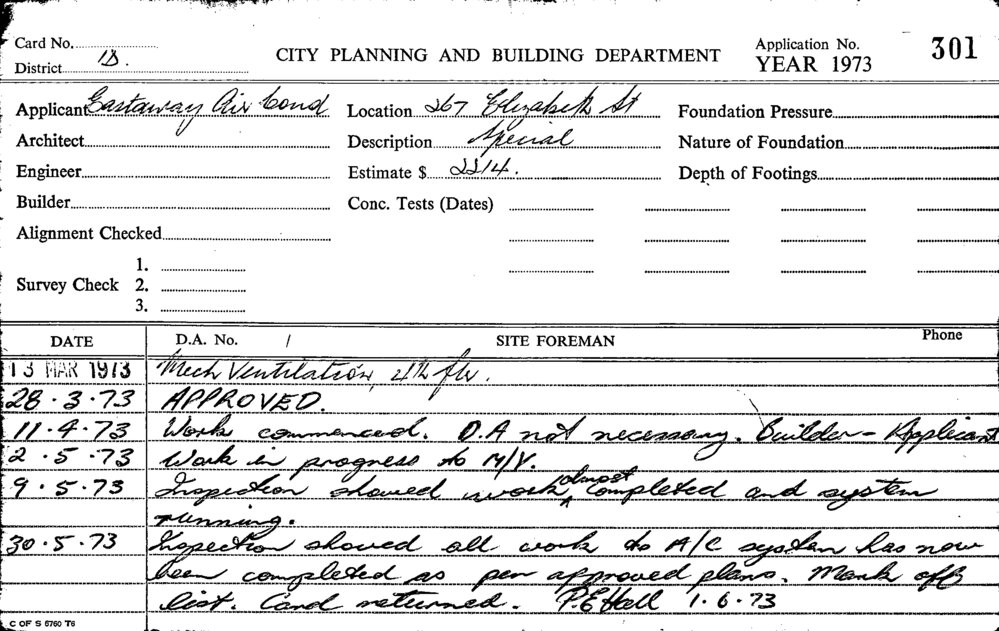 Card No.
District 1B.
CITY PLANNING AND BUILDING DEPARTMENT
Application No. 301
YEAR 1973
Applicant Eastaway Air Cond
Location 267 Elizabeth St
Foundation Pressure
Architect
Description Special
Nature of Foundation
Engineer
Estimate $ 2214.
Depth of Footings
Builder
Conc. Tests (Dates)
Alignment Checked
Survey Check
1.
2.
3.
DATE D.A. No. / SITE FOREMAN Phone
13 MAR 1973 Mech Ventilation, 4th flr.
28.3.73 APPROVED.
11.4.73 Work commenced. D.A not necessary. Builder - Applicant
2.5.73 Work in progress to M/V.
9.5.73 Inspection showed work almost completed and system
running.
30.5.73 Inspection showed all work to A/C system has now
been completed as per approved plans. Mark off
list. Card returned. P.E Hall 1.6.73
C OF S 6760 T6